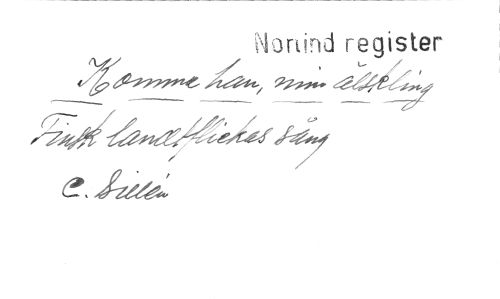 Norlind register
Komme han, min älskling
Finsk landtflickas sång
C. Sillén